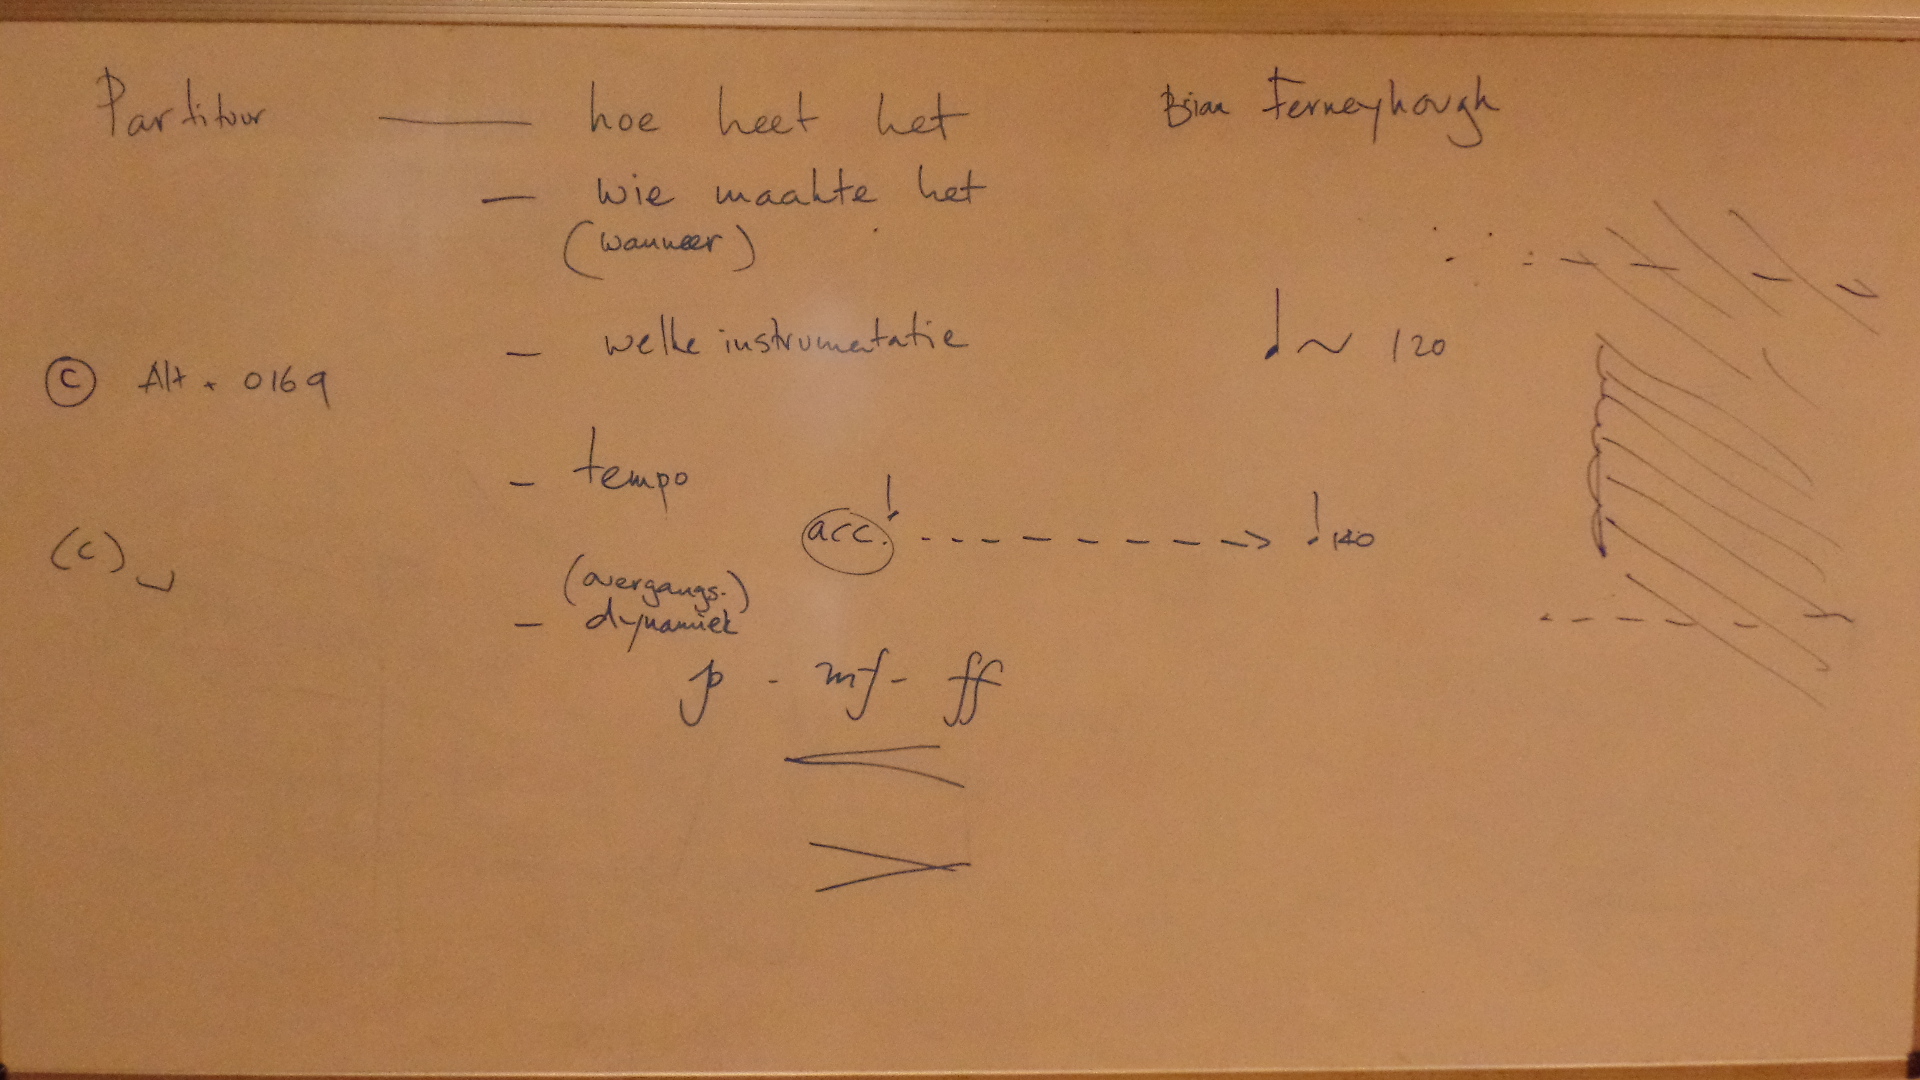 Partituur — hoe heet het
Brian Ferneyhough
— wie maakte het
(wanneer)
— welke instrumentatie
♩ ~ 120
© Alt + 0169
— tempo
acc. ♩ - - - - - - - -> ♩ 140
(c)
(overgangs-)
— dynamiek
p - mf - ff